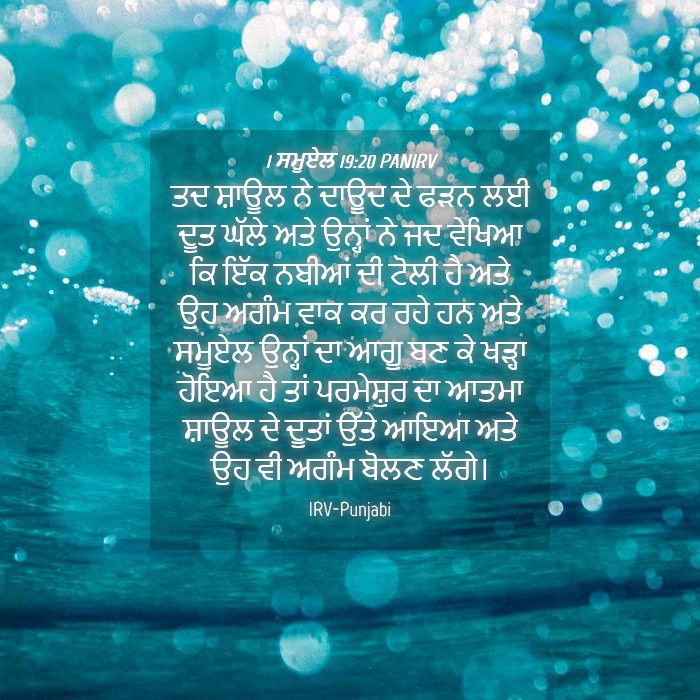 1 ਸਮੂਏਲ 19:20 PANIRV
ਤਦ ਸ਼ਾਊਲ ਨੇ ਦਾਊਦ ਦੇ ਫੜਨ ਲਈ
ਦੂਤ ਘੱਲੇ ਅਤੇ ਉਨ੍ਹਾਂ ਨੇ ਜਦ ਵੇਖਿਆ
ਕਿ ਇੱਕ ਨਬੀਆਂ ਦੀ ਟੋਲੀ ਹੈ ਅਤੇ
ਉਹ ਅਗੰਮ ਵਾਕ ਕਰ ਰਹੇ ਹਨ ਅਤੇ
ਸਮੂਏਲ ਉਨ੍ਹਾਂ ਦਾ ਆਗੂ ਬਣ ਕੇ ਖੜ੍ਹਾ
ਹੋਇਆ ਹੈ ਤਾਂ ਪਰਮੇਸ਼ੁਰ ਦਾ ਆਤਮਾ
ਸ਼ਾਊਲ ਦੇ ਦੂਤਾਂ ਉੱਤੇ ਆਇਆ ਅਤੇ
ਉਹ ਵੀ ਅਗੰਮ ਬੋਲਣ ਲੱਗੇ।
IRV-Punjabi